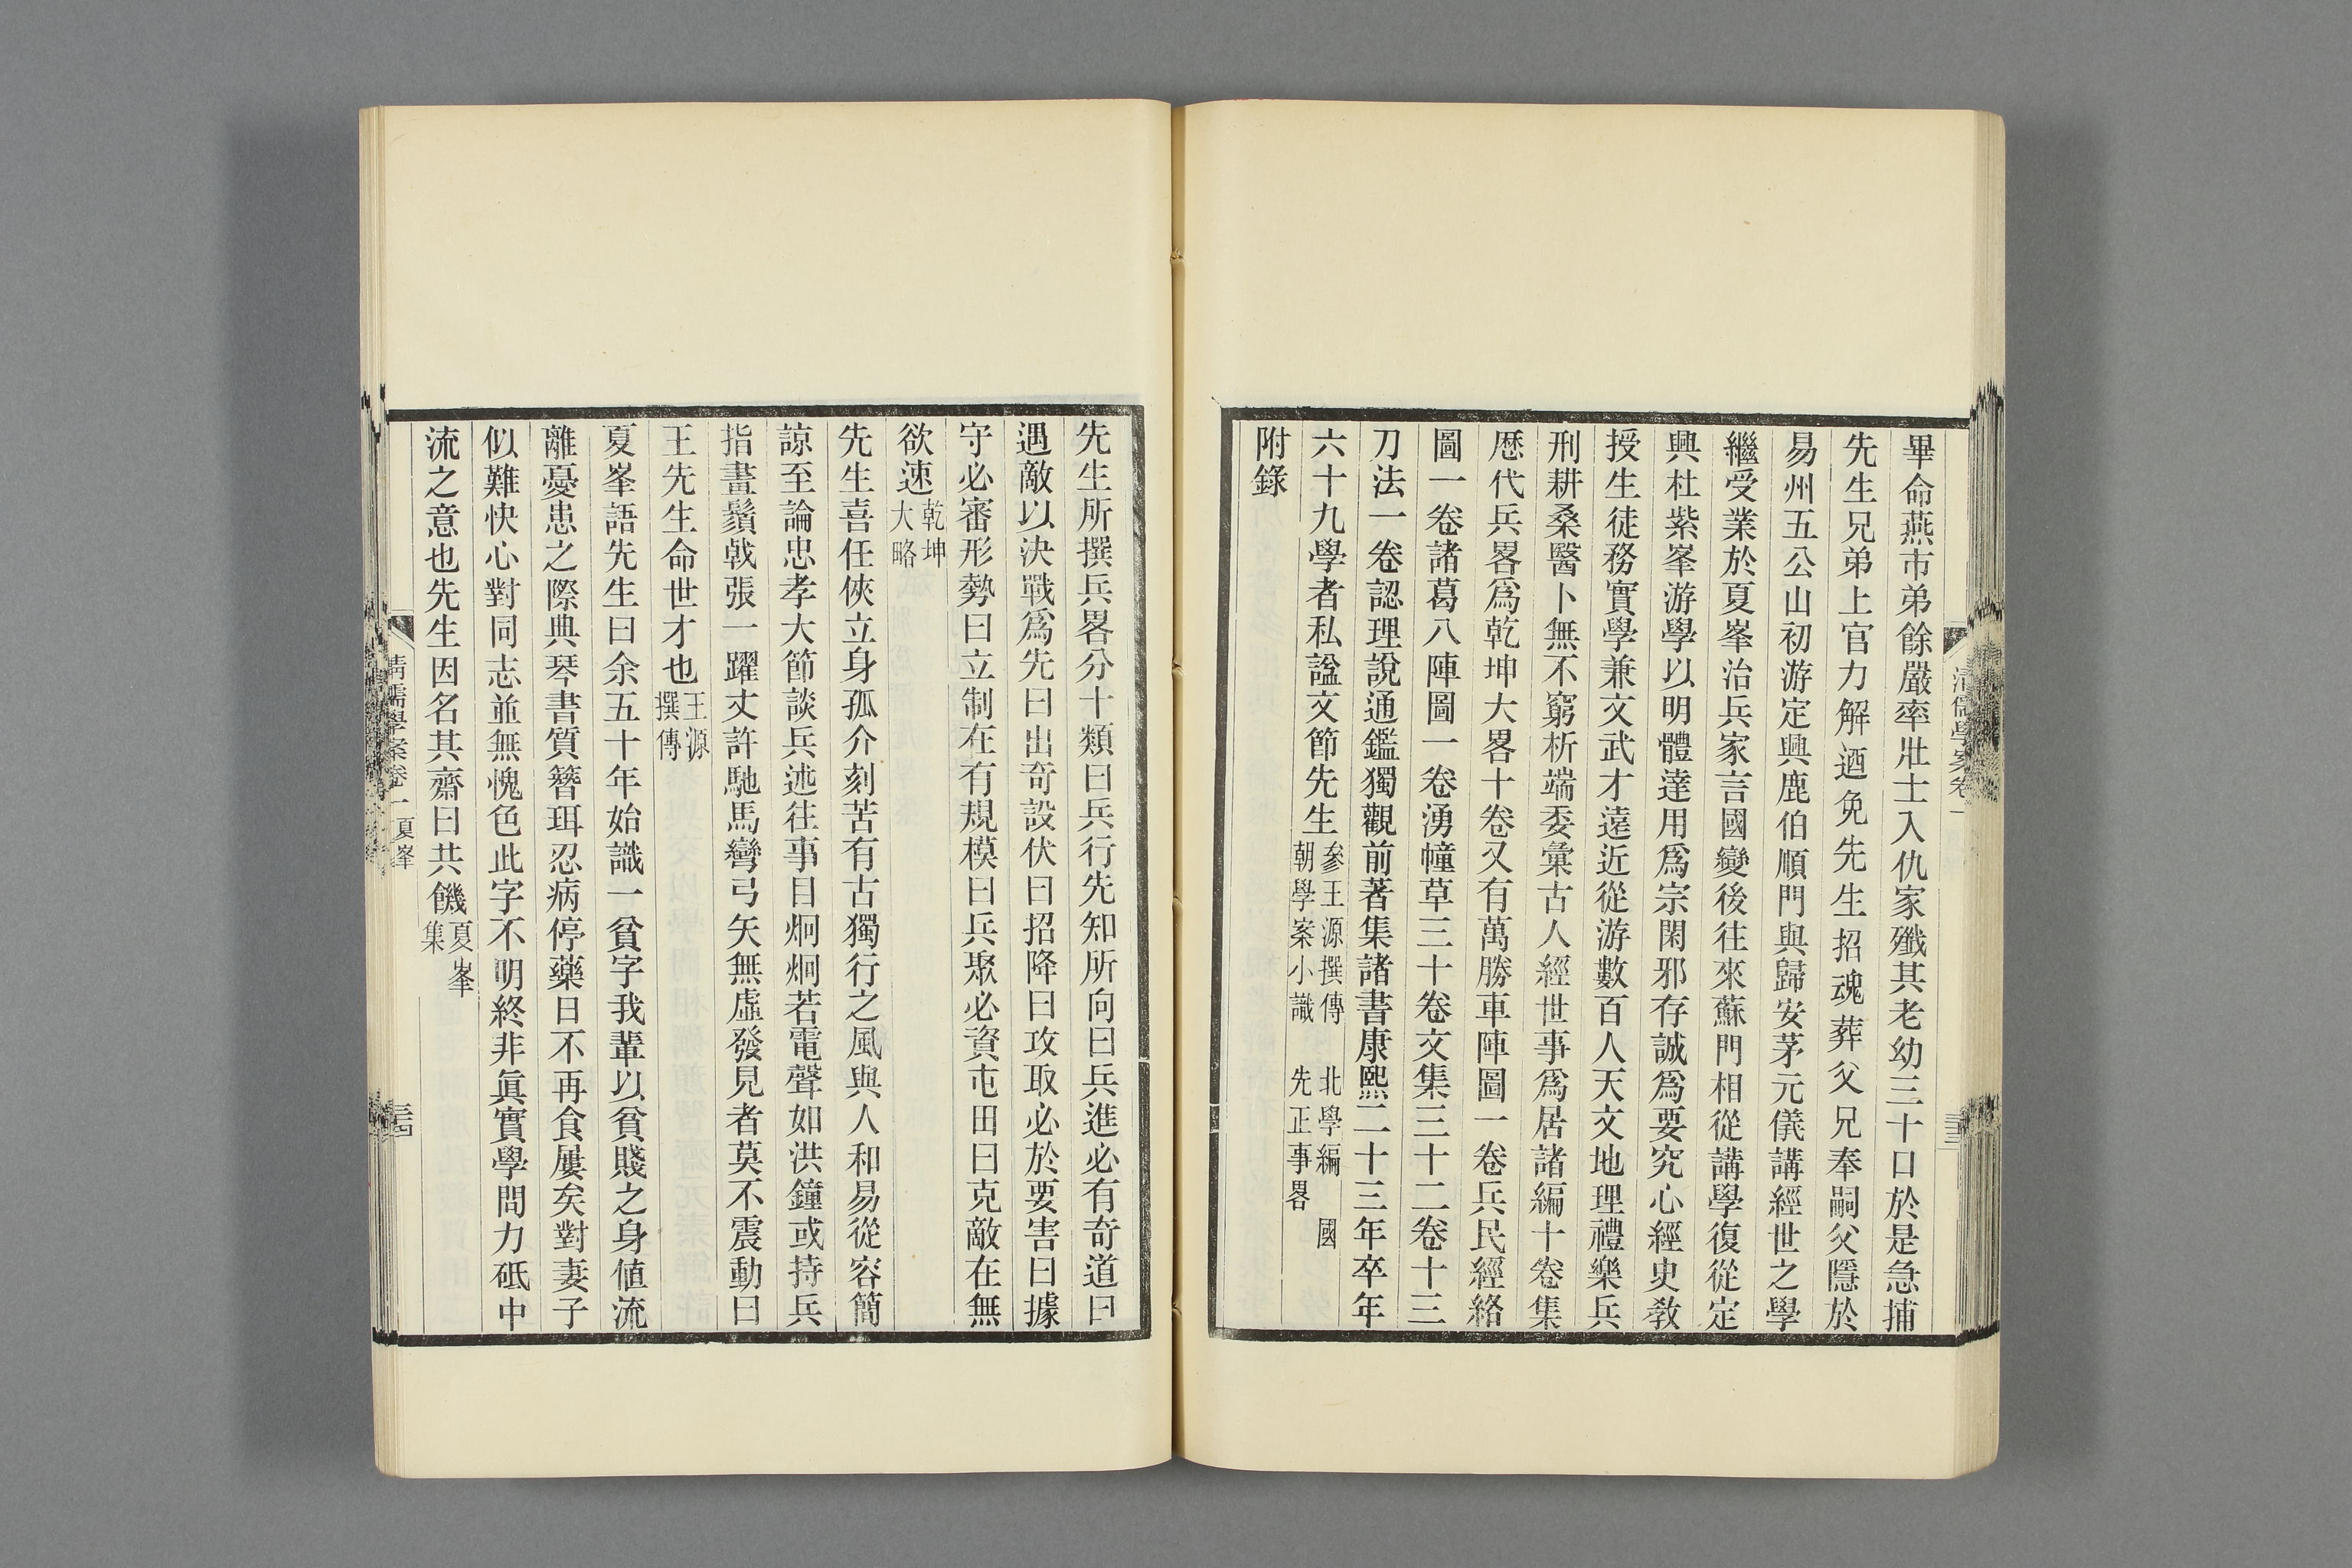 畢命燕市弟餘嚴率壯士入仇家殲其老幼三十口於是急捕
先生兄弟上官力解迺免先生招魂葬父兄奉嗣父隱於
易州五公山初游定興鹿伯順門與歸安茅元儀講經世之學
繼受業於夏峯治兵家言國變後往來蘇門相從講學復從定
興杜紫峯游學以明體達用爲宗閑邪存誠爲要究心經史敎
授生徒務實學兼文武才遠近從游數百人天文地理禮樂兵
刑耕桑醫卜無不窮析端委彙古人經世事爲居諸編十卷集
歷代兵畧爲乾坤大畧十卷又有萬勝車陣圖一卷兵民經絡
圖一卷諸葛八陣圖一卷湧幢草三十卷文集三十二卷十三
刀法一卷認理說通鑑獨觀前著集諸書康熙二十三年卒年
六十九學者私諡文節先生參王源撰傳　北學編　國
朝學案小識　先正事畧
附錄
清儒學案卷一
三十三
先生所撰兵畧分十類曰兵行先知所向曰兵進必有奇道曰
遇敵以決戰爲先曰出奇設伏曰招降曰攻取必於要害曰據
守必審形勢曰立制在有規模曰兵聚必資屯田曰克敵在無
欲速乾坤
大略
先生喜任俠立身孤介刻苦有古獨行之風與人和易從容簡
諒至論忠孝大節談兵述往事目炯炯若電聲如洪鐘或持兵
指畫鬚戟張一躍丈許馳馬彎弓矢無虛發見者莫不震動曰
王先生命世才也王源
撰傳
夏峯語先生曰余五十年始識一貧字我輩以貧賤之身値流
離憂患之際典琴書質簪珥忍病停藥日不再食屢矣對妻子
似難快心對同志並無愧色此字不明終非眞實學問力砥中
流之意也先生因名其齋曰共饑夏峯
集
清儒學案卷一　夏峯
三十四